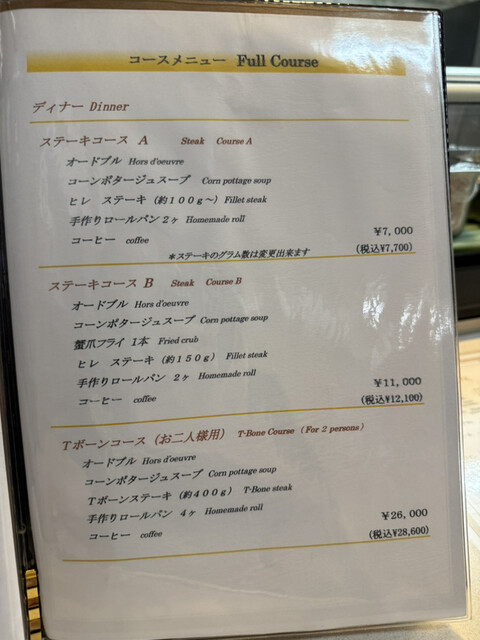 コースメニュー Full Course
ディナー Dinner
ステーキコース A Steak Course A
オードブル Hors d'oeuvre
コーンポタージュスープ Corn pottage soup
ヒレ ステーキ (約100g～) Fillet steak
手作りロールパン2ヶ Homemade roll
コーヒー coffee
¥7,000
*ステーキのグラム数は変更出来ます (税込¥7,700)
ステーキコース B Steak Course B
オードブル Hors d'oeuvre
コーンポタージュスープ Corn pottage soup
蟹爪フライ 1本 Fried crub
ヒレ ステーキ (約150g) Fillet steak
手作りロールパン 2ヶ Homemade roll
¥11,000
コーヒー coffee
(税込¥12,100)
Tボーンコース (お二人様用) T-Bone Course (For 2 persons)
オードブル Hors d'oeuvre
コーンポタージュスープ Corn pottage soup
Tボーンステーキ (約400g) T-Bone steak
手作りロールパン 4ヶ Homemade roll
¥26,000
コーヒー coffee
(税込¥28,600)